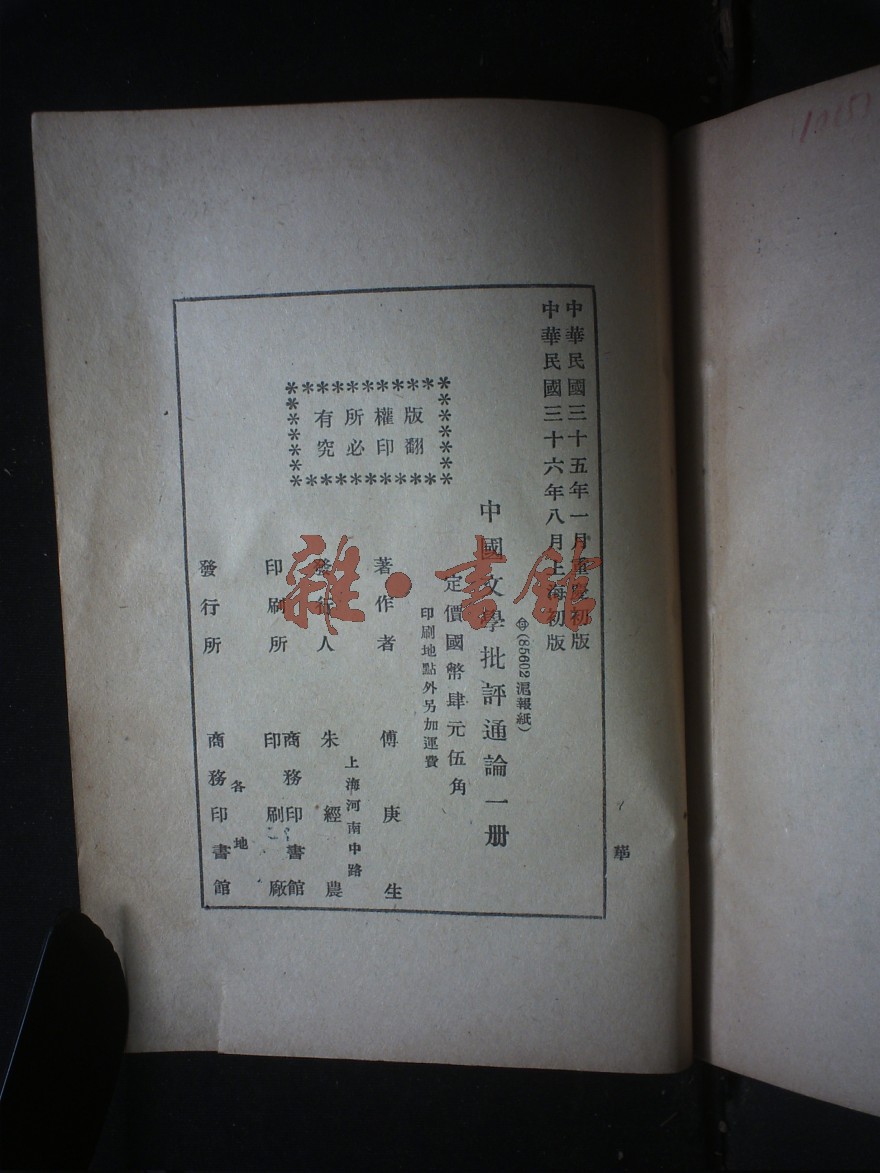 中華民國三十五年一月重慶初版
中華民國三十六年八月上海初版
(85602滬報紙)
中國文學批評通論一册
定價國幣肆元伍角
印刷地點外另加運費
版權所有
翻印必究
著作者 傅庚生
上海河南中路
發行人 朱經農
印刷所 商務印書館
印刷廠
各地
發行所 商務印書館
雜·書館